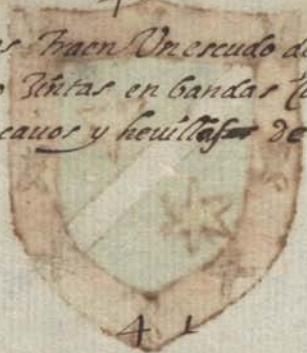 es traen Un escudo de
o Zintas en bandas
cauos y heuillas de
4 1